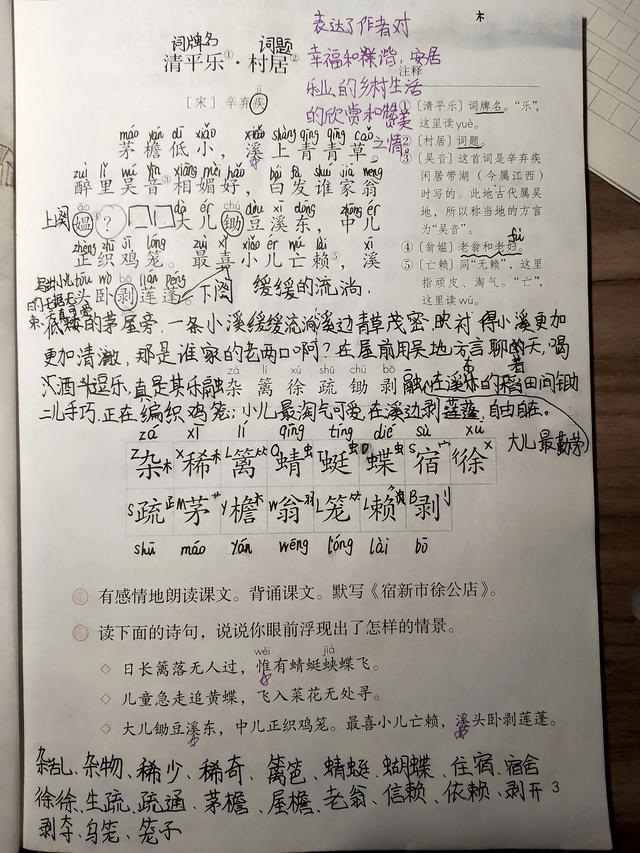 木
表达了作者对
幸福和谐,安居
乐业的乡村生活
的欣赏和赞美
之情。
词牌名 词题
清平乐①·村居②
注释
[宋] 辛弃疾
máo yán dī xiǎo xī shàng qīng qīng cǎo
茅檐低小,溪上青青草。
zuì lǐ wú yīn xiāng mèi hǎo bái fà shuí jiā wēng
醉里吴音③相媚好,白发谁家翁
ǎo dà ér chú dòu xī dōng zhōng ér
上阕 媪④?大儿锄豆溪东,中儿
zhèng zhī jī lóng zuì xǐ xiǎo ér wú lài xī
正织鸡笼。最喜小儿亡赖⑤,溪
tóu wò bō lián péng
头卧剥莲蓬。下阕 缓缓的流淌.
①[清平乐]词牌名。“乐”,
这里读yuè。
②[村居]词题。
③[吴音]这首词是辛弃疾
闲居带湖(今属江西)
时写的。此地古代属吴
地,所以称当地的方言
为“吴音”。
④[翁媪]老翁和老妇。
⑤[亡赖]同“无赖”,这里
指顽皮、淘气。“亡”,
这里读wú。
低矮的茅屋旁,一条小溪缓缓流淌溪边青草茂密,映衬得小溪更加
更加清澈,那是谁家的老两口啊?在屋前用吴地方言聊着天,喝
zá lí xú shū chú bō
杂篱徐疏锄剥
二儿手巧,正在编织鸡笼;小儿最淘气可爱,在溪边剥莲蓬,自由自在。
大儿最勤劳
zá xī lí qīng tíng dié sù xú
杂稀篱蜻蜓蝶宿徐
疏茅檐翁笼赖剥
shū máo yán wēng lóng lài bō
有感情地朗读课文。背诵课文。默写《宿新市徐公店》。
读下面的诗句,说说你眼前浮现出了怎样的情景。
wéi jiá
◇ 日长篱落无人过,惟有蜻蜓蛱蝶飞。
◇ 儿童急走追黄蝶,飞入菜花无处寻。
◇ 大儿锄豆溪东,中儿正织鸡笼。最喜小儿亡赖,溪头卧剥莲蓬。
杂乱、杂物、稀少、稀奇、篱笆、蜻蜓、蝴蝶、住宿、宿舍
徐徐、生疏、疏通、茅檐、屋檐、老翁、信赖、依赖、剥开
3
剥夺、鸟笼、笼子